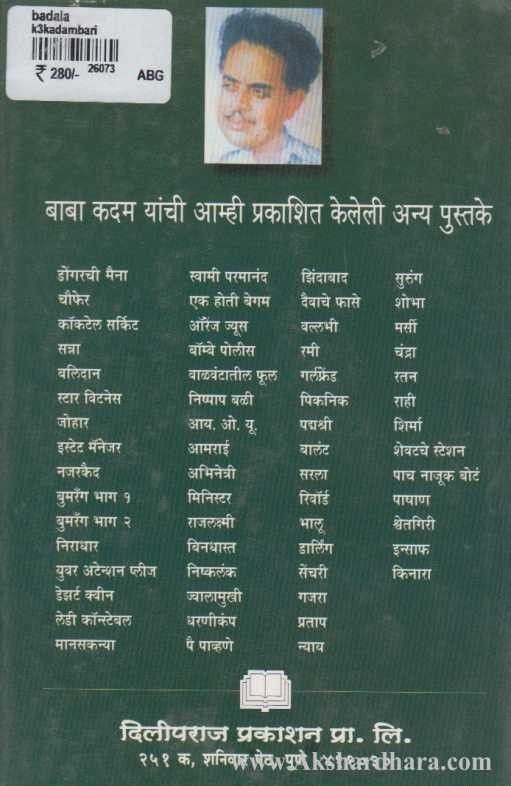 badala
k3kadambari
₹ 280/- 26073 ABG
बाबा कदम यांची आम्ही प्रकाशित केलेली अन्य पुस्तके
डोंगरची मैना
चौफेर
कॉकटेल सर्किट
सत्रा
बलिदान
स्टार विटनेस
जोहार
इस्टेट मॅनेजर
नजरकैद
बुमरँग भाग १
बुमरँग भाग २
निराधार
युवर अटेन्शन प्लीज
डेझर्ट क्वीन
लेडी कॉन्स्टेबल
मानसकन्या
स्वामी परमानंद
एक होती बेगम
ऑरेंज ज्यूस
बॉम्बे पोलीस
वाळवंटातील फूल
निष्पाप बळी
आय. ओ. यू.
आमराई
अभिनेत्री
मिनिस्टर
राजलक्ष्मी
बिनधास्त
निष्कलंक
ज्वालामुखी
धरणीकंप
पै पाव्हणे
झिंदाबाद
दैवाचे फासे
वल्लभी
रमी
गर्लफ्रेंड
पिकनिक
पद्मश्री
बालंट
सरला
रिवॉर्ड
भालू
डार्लिंग
सेंचरी
गजरा
प्रताप
न्याय
सुरुंग
शोभा
मर्सी
चंद्रा
रतन
राही
शिर्मा
शेवटचे स्टेशन
पाच नाजूक बोटं
पाषाण
श्वेतगिरी
इन्साफ
किनारा
दिलीपराज प्रकाशन प्रा. लि.
२५१ क, शनिवार पेठ, पुणे
www.Akshardhara.com